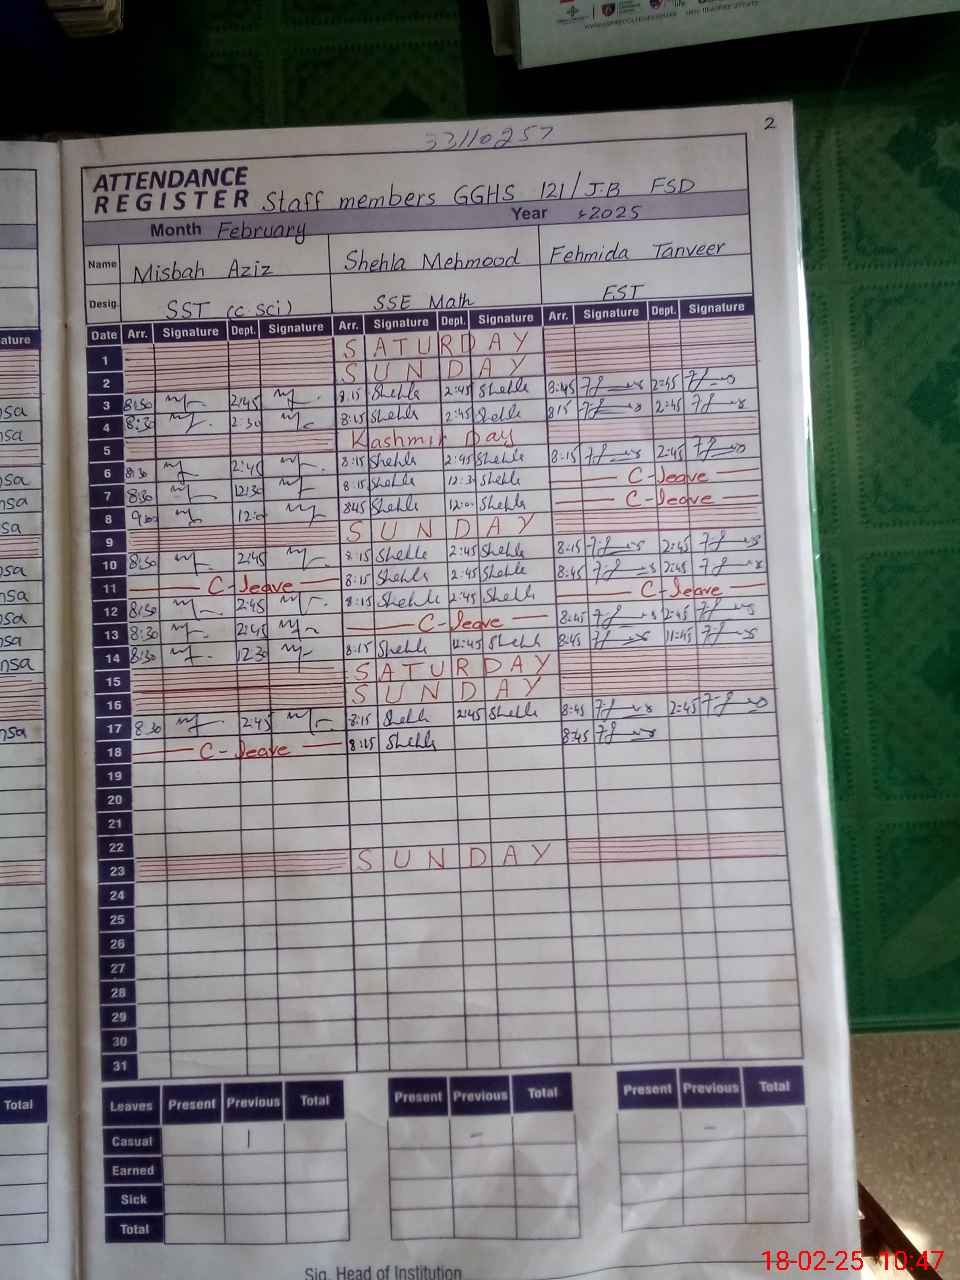 2
33110257
ATTENDANCE
REGISTER Staff members GGHS 121/J.B FSD
Month February Year 2025
Name Misbah Aziz Shehla Mehmood Fehmida Tanveer
Desig. SST (c.sci) SSE Math EST
Date Arr. Signature Dept. Signature Arr. Signature Dept. Signature Arr. Signature Dept. Signature
1 SATURDAY
2 SUNDAY
3 8:30 2:45 8:15 Shehla 2:45 Shehla 8:45 2:45
4 8:30 2:30 8:15 Shehla 2:45 Shehla 815 2:45
5 Kashmir Day
6 8:30 2:45 8:15 Shehla 2:45 Shehla 8:15 2:45
7 8:30 12:30 8:15 Shehla 12:30 Shehla C-leave
8 9:00 12:0 845 Shehla 12:00 Shehla C-leave
9 SUNDAY
10 8:30 2:45 8:15 Shehla 2:45 Shehla 8:15 2:45
11 C-leave 8:15 Shehla 2:45 Shehla 8:45 2:45
12 8:30 2:45 8:15 Shehla 2:45 Shehla C-leave
13 8:30 2:45 C-leave 8:45 2:45
14 8:30 12:30 8:15 Shehla 12:45 Shehla 8:45 11:45
15 SATURDAY
16 SUNDAY
17 8:30 2:45 8:15 Shehla 2:45 Shehla 8:45 2:45
18 C-leave 8:15 Shehla 8:45
19
20
21
22
23 SUNDAY
24
25
26
27
28
29
30
31
Total Leaves Present Previous Total Present Previous Total Present Previous Total
Casual 1 - -
Earned
Sick
Total
Sig. Head of Institution
18-02-25 10:47